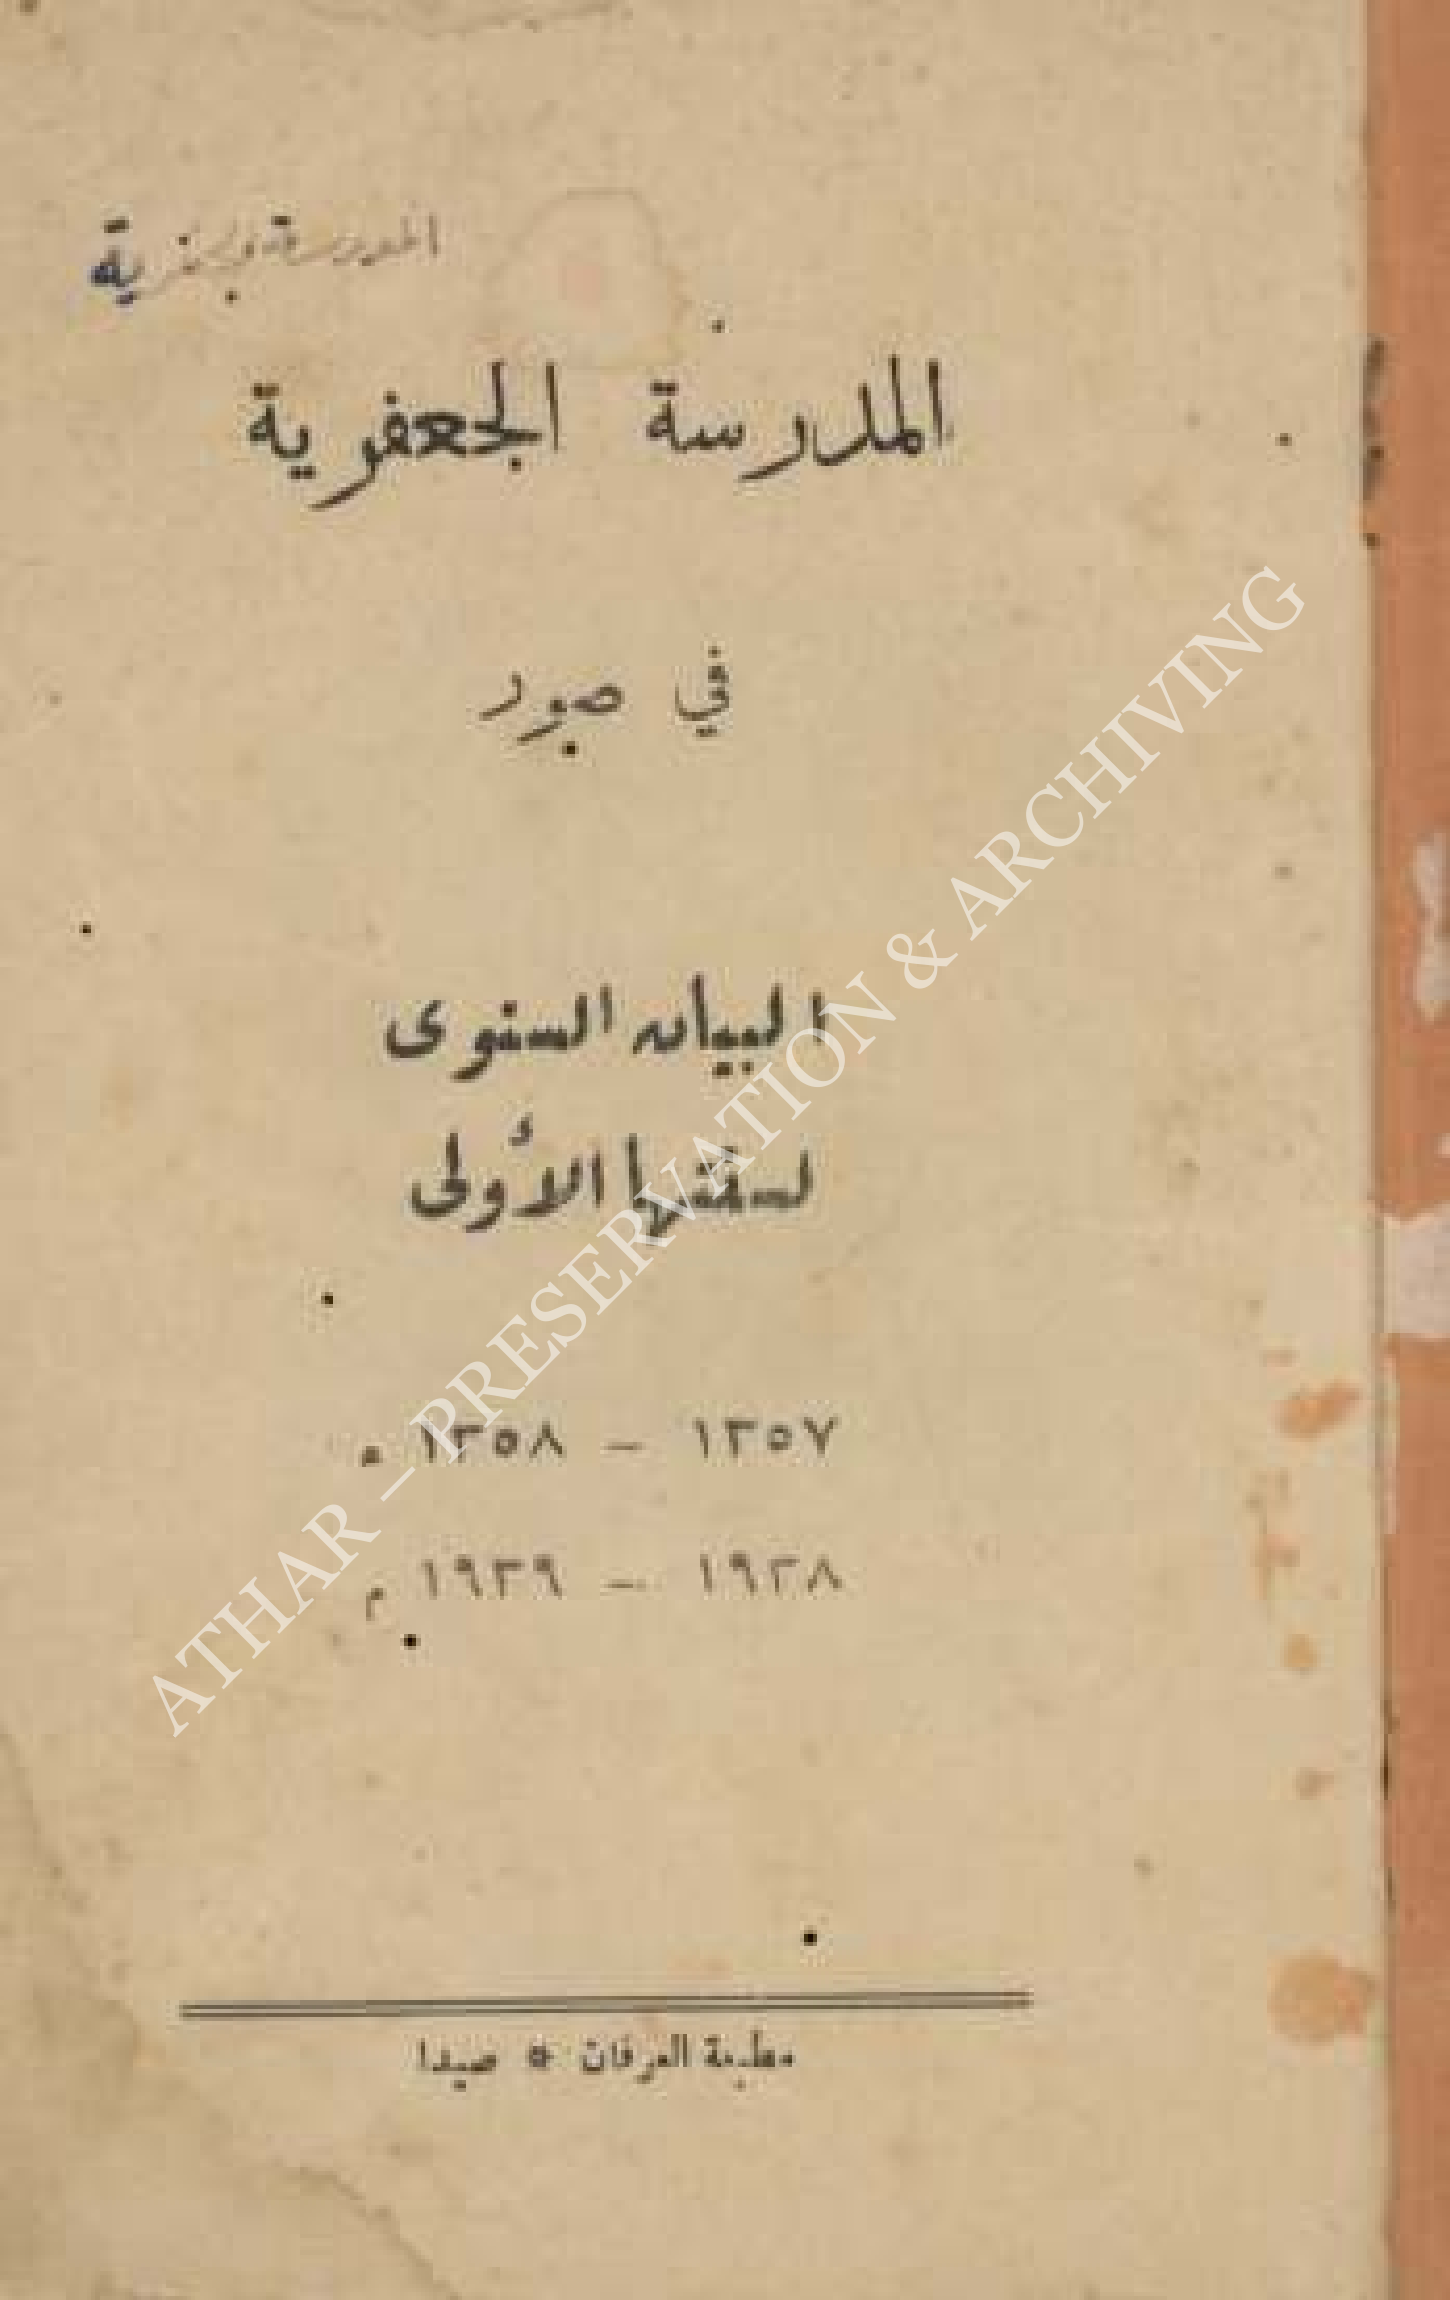 المدرسة
المدرسة الجعفرية
في صور
البيان السنوى
لسنتها الأولى
١٣٥٧ – ١٣٥٨ ه
١٩٣٨ – ١٩٣٩ م
مطبعة العرفان * صيدا
ATHAR – PRESERVATION & ARCHIVING